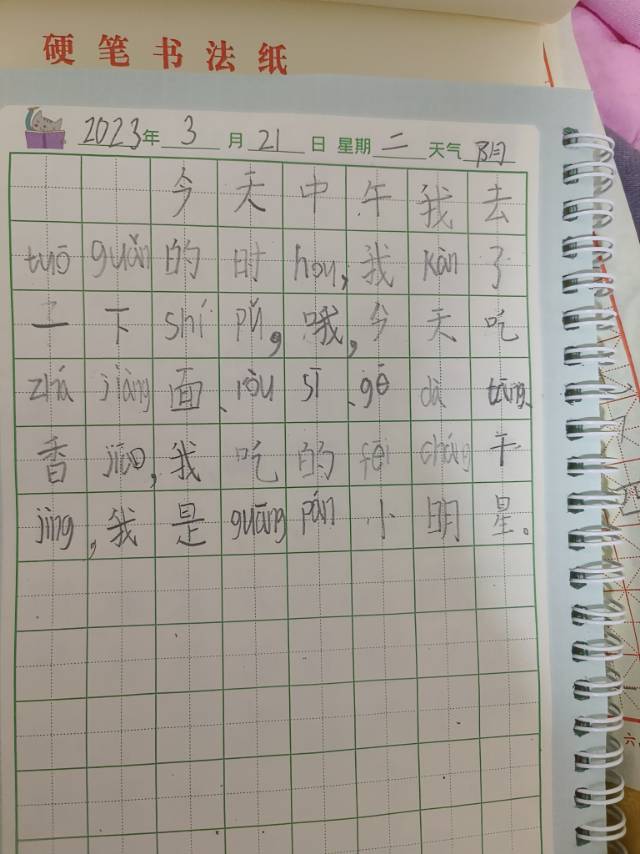 硬笔书法纸
2023年 3 月 21 日 星期 二 天气 阴
今天中午我去
tuō guǎn 的时 hou,我 kàn 了
一下 shí pǔ,哦,今天吃
zhá jiàng 面、ròu sī、gē dā tāng、
香 jiāo,我吃的 fēi cháng 干
jìng,我是 guāng pán 小明星。